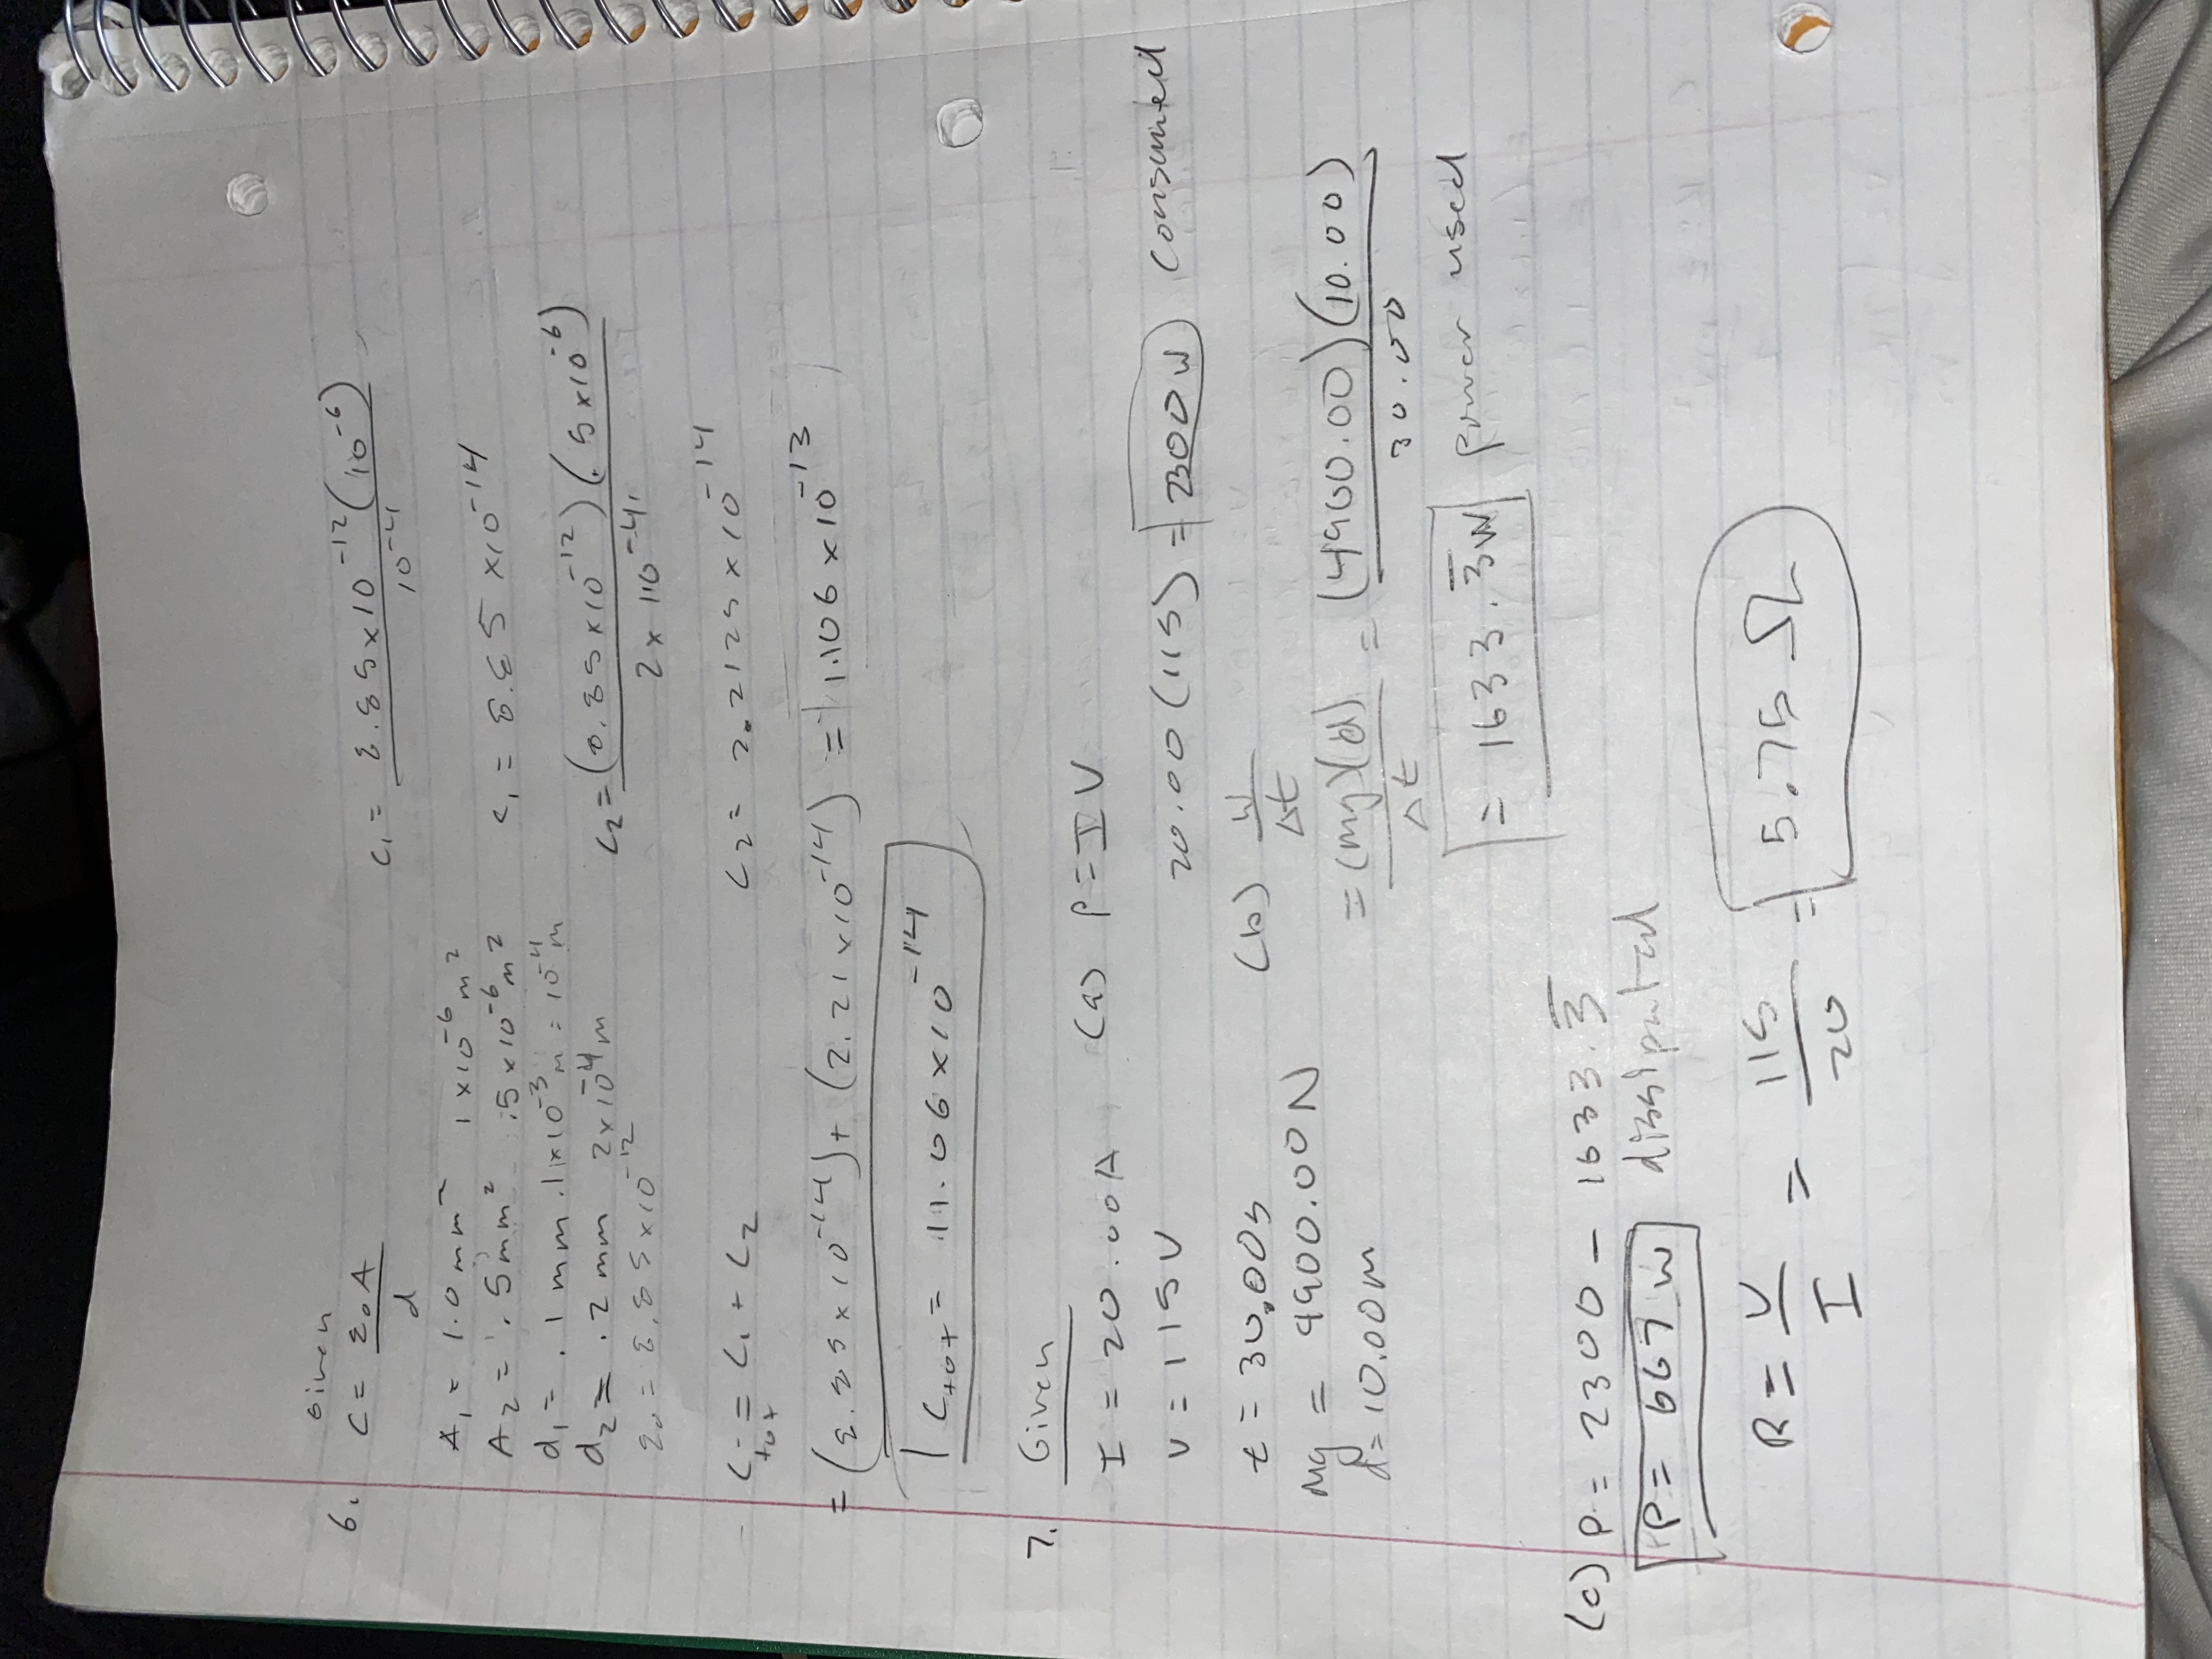 6.
Given
C = ε₀A / d
A₁ = 1.0 mm² 1 x 10⁻⁶ m²
A₂ = .5 mm² .5 x 10⁻⁶ m²
d₁ = .1 mm .1 x 10⁻³ m = 10⁻⁴ m
d₂ = .2 mm 2 x 10⁻⁴ m
ε₀ = 8.85 x 10⁻¹²
C₁ = 8.85 x 10⁻¹² (10⁻⁶) / 10⁻⁴
C₁ = 8.85 x 10⁻¹⁴
C₂ = (8.85 x 10⁻¹²)(.5 x 10⁻⁶) / 2 x 10⁻⁴
C₂ = 2.2125 x 10⁻¹⁴
C_tot = C₁ + C₂
= (8.85 x 10⁻¹⁴) + (2.21 x 10⁻¹⁴) = 1.106 x 10⁻¹³
C_tot = 11.06 x 10⁻¹⁴
7. Given
I = 20.00A
V = 115V
t = 30.00s
Mg = 4900.00N
d = 10.00m
(a) P = IV
20.00 (115) = 2300 W consumed
(b) W / Δt
= (mg)(d) / Δt = (4900.00)(10.00) / 30.00
= 1633.3̅ W power used
(c) P = 2300 - 1633.3̅
P = 667 W dissipated
R = V / I = 115 / 20 = 5.75 Ω